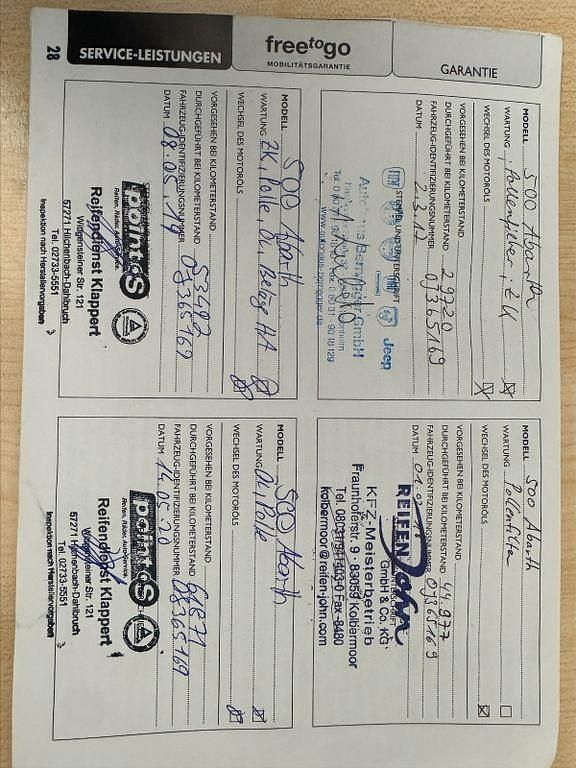 28
SERVICE-LEISTUNGEN
freetogo
MOBILITÄTSGARANTIE
GARANTIE
MODELL 500 Abarth
WARTUNG
WECHSEL DES MOTORÖLS
VORGESEHEN BEI KILOMETERSTAND
DURCHGEFÜHRT BEI KILOMETERSTAND 29720
FAHRZEUG-IDENTIFIZIERUNGSNUMMER 0J365169
DATUM 2.3.17
STEMPEL UND UNTERSCHRIFT
Jeep
GmbH
MODELL 500 Abarth
WARTUNG Pollenfilter
WECHSEL DES MOTORÖLS
VORGESEHEN BEI KILOMETERSTAND
DURCHGEFÜHRT BEI KILOMETERSTAND 44977
FAHRZEUG-IDENTIFIZIERUNGSNUMMER 0J365169
DATUM
REIFEN John
GmbH & Co. KG
KFZ-Meisterbetrieb
Fraunhoferstr. 9 - 83059 Kolbermoor
kolbermoor@reifen-john.com
MODELL 500 Abarth
WARTUNG ZK, Polle, Öl, Beläg HA
WECHSEL DES MOTORÖLS
VORGESEHEN BEI KILOMETERSTAND
DURCHGEFÜHRT BEI KILOMETERSTAND 53482
FAHRZEUG-IDENTIFIZIERUNGSNUMMER 0J365169
DATUM 08.05.19
point S
Reifen, Räder, Auto-Service.
Reifendienst Klappert
Wittgensteiner Str. 121
57271 Hilchenbach-Dahlbruch
Tel. 02733-5551
Inspektion nach Herstellervorgaben
MODELL 500 Abarth
WARTUNG Öl, Polle
WECHSEL DES MOTORÖLS
VORGESEHEN BEI KILOMETERSTAND
DURCHGEFÜHRT BEI KILOMETERSTAND 61871
FAHRZEUG-IDENTIFIZIERUNGSNUMMER 0J365169
DATUM 14.05.20
point S
Reifen, Räder, Auto-Service.
Reifendienst Klappert
Wittgensteiner Str. 121
57271 Hilchenbach-Dahlbruch
Tel. 02733-5551
Inspektion nach Herstellervorgaben